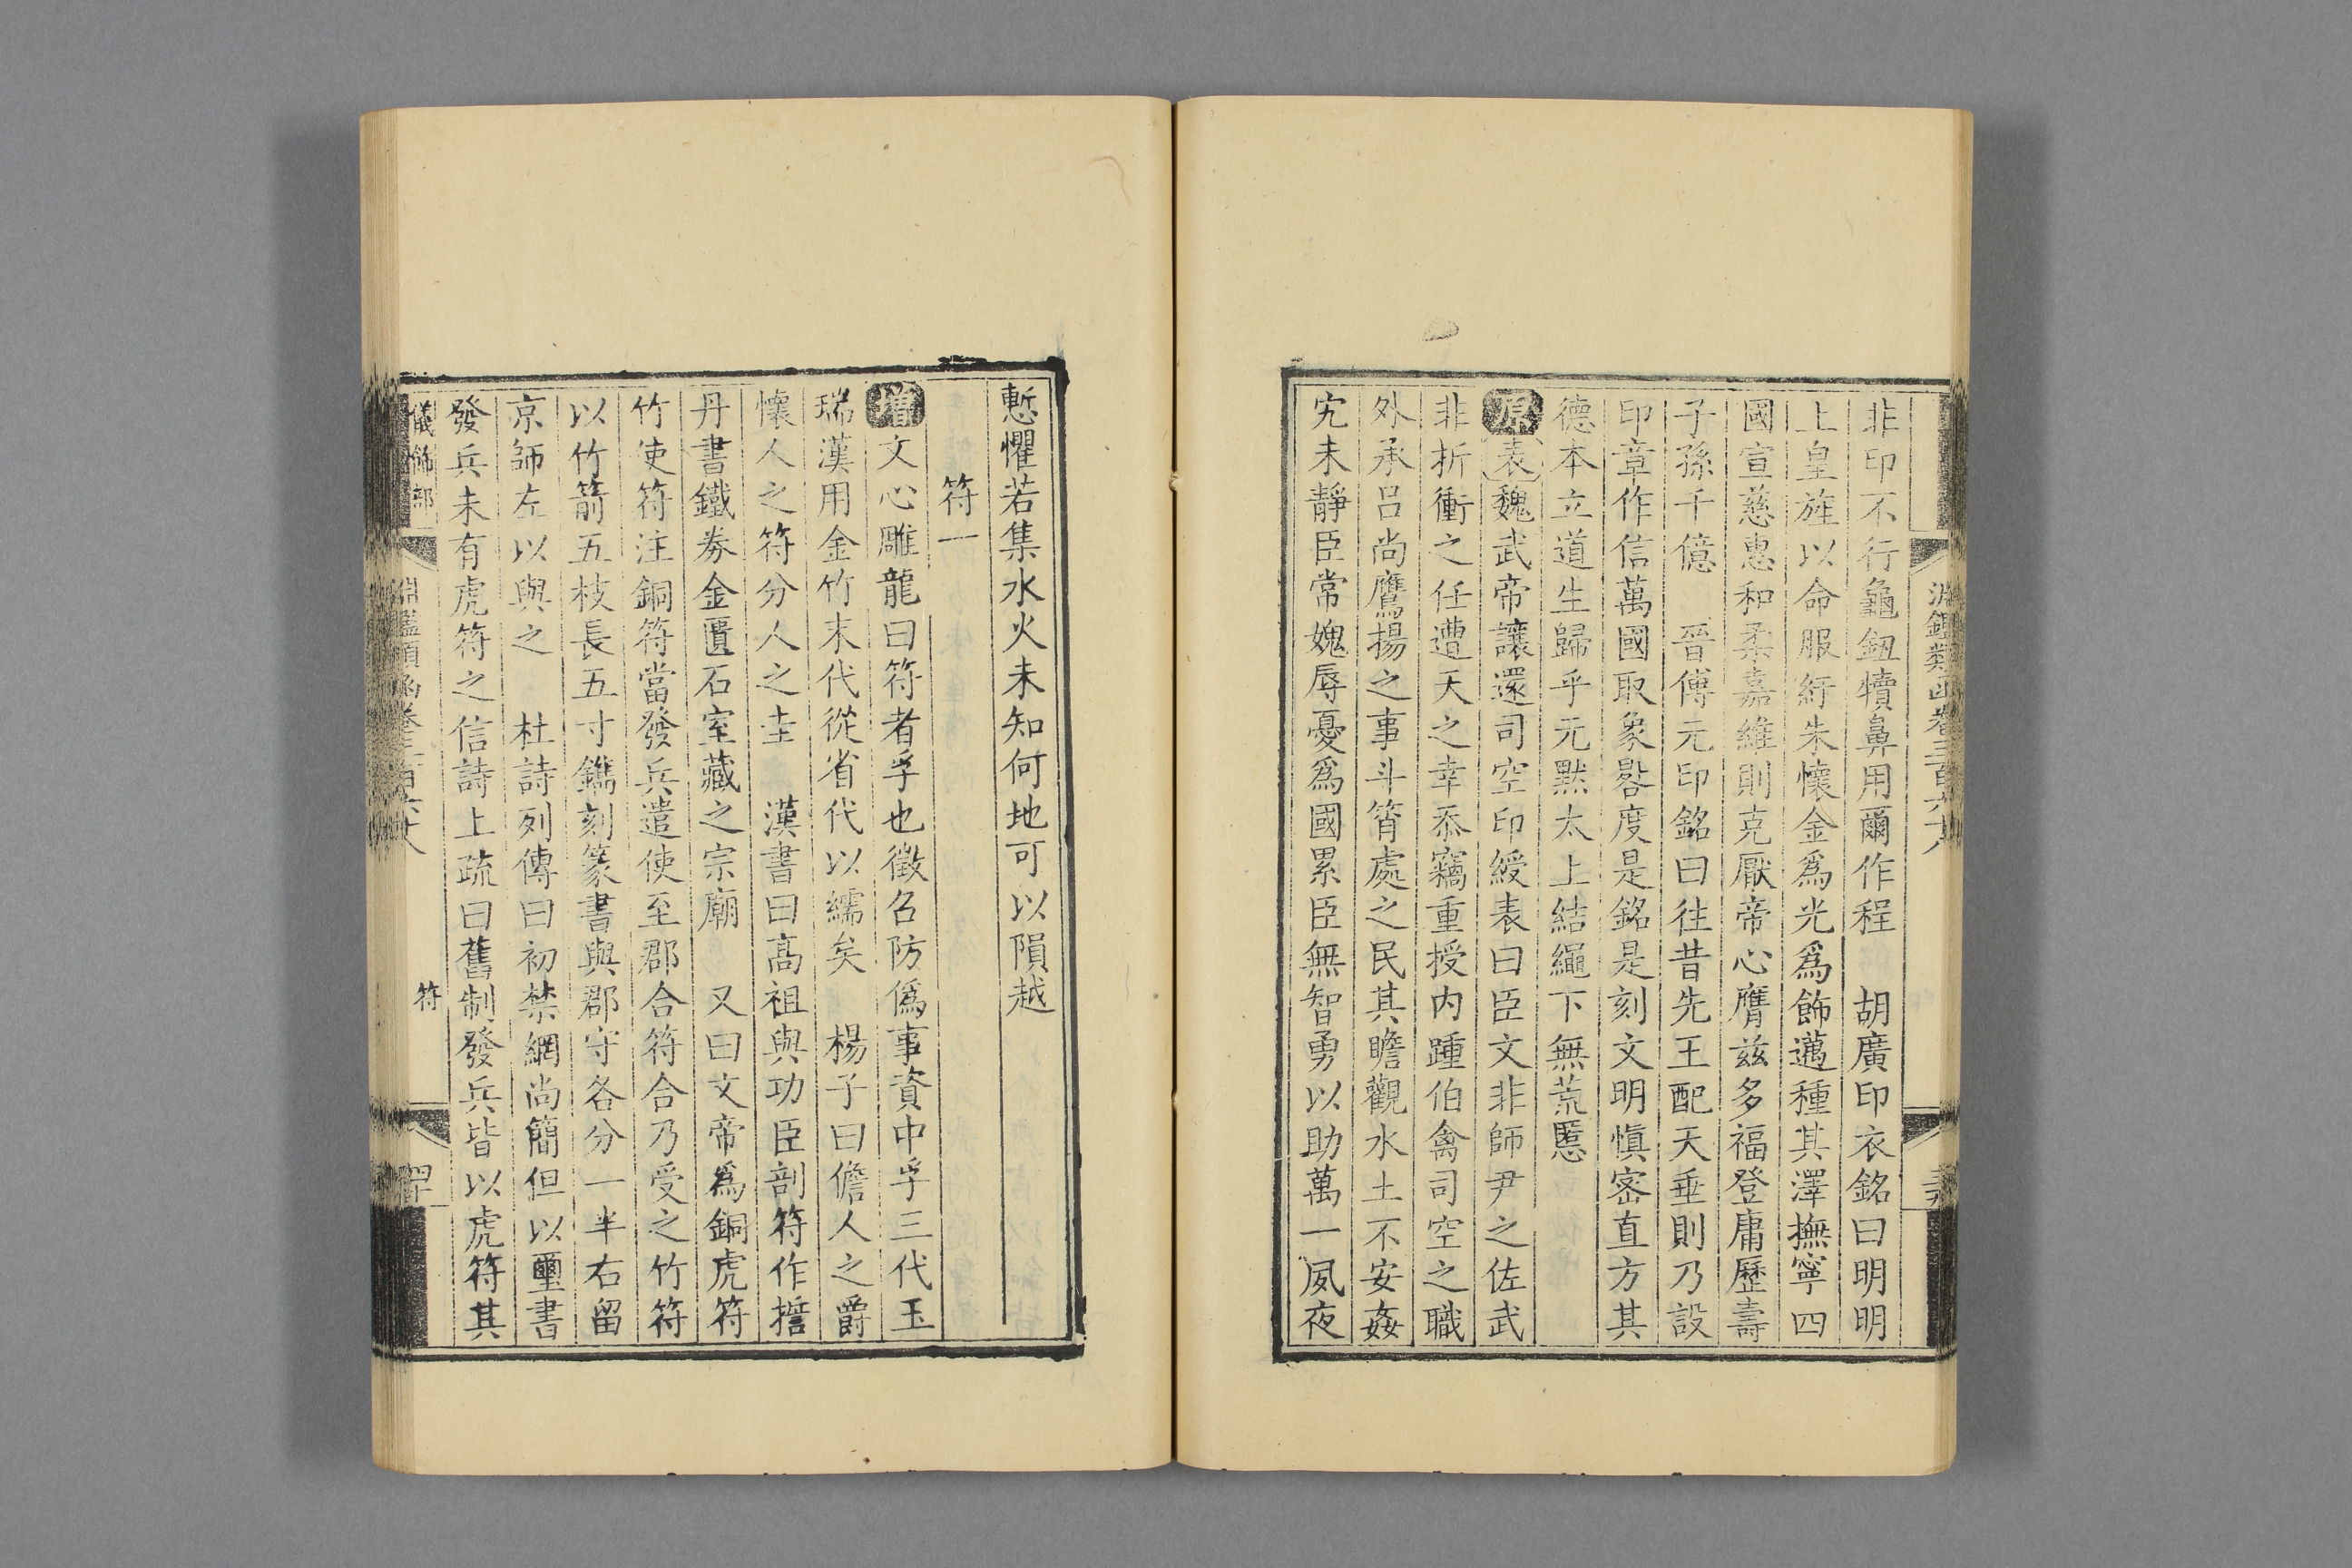 淵鑑類函卷三百六十八
非印不行龜鈕犢鼻用爾作程　胡廣印衣銘曰明明
上皇旌以命服紆朱懷金爲光爲飾邁種其澤撫寧四
國宣慈惠和柔嘉維則克厭帝心膺茲多福登庸歷壽
子孫千億　晉傅元印銘曰往昔先王配天垂則乃設
印章作信萬國取象晷度是銘是刻文明慎密直方其
德本立道生歸乎元默太上結繩下無荒慝
原表魏武帝讓還司空印綬表曰臣文非師尹之佐武
非折衝之任遭天之幸忝竊重授内踵伯禽司空之職
外承呂尚鷹揚之事斗筲處之民其瞻觀水土不安姦
宄未靜臣常媿辱憂爲國累臣無智勇以助萬一夙夜
慙懼若集水火未知何地可以隕越
符一
增文心雕龍曰符者孚也徵召防偽事資中孚三代玉
瑞漢用金竹末代從省代以繻矣　楊子曰儋人之爵
懷人之符分人之圭　漢書曰高祖與功臣剖符作誓
丹書鐵券金匱石室藏之宗廟　又曰文帝爲銅虎符
竹使符注銅符當發兵遣使至郡合符合乃受之竹符
以竹箭五枝長五寸鐫刻篆書與郡守各分一半右留
京師左以與之　杜詩列傳曰初禁網尚簡但以璽書
發兵未有虎符之信詩上疏曰舊制發兵皆以虎符其
儀飾部
淵鑑類函卷三百六十八
符